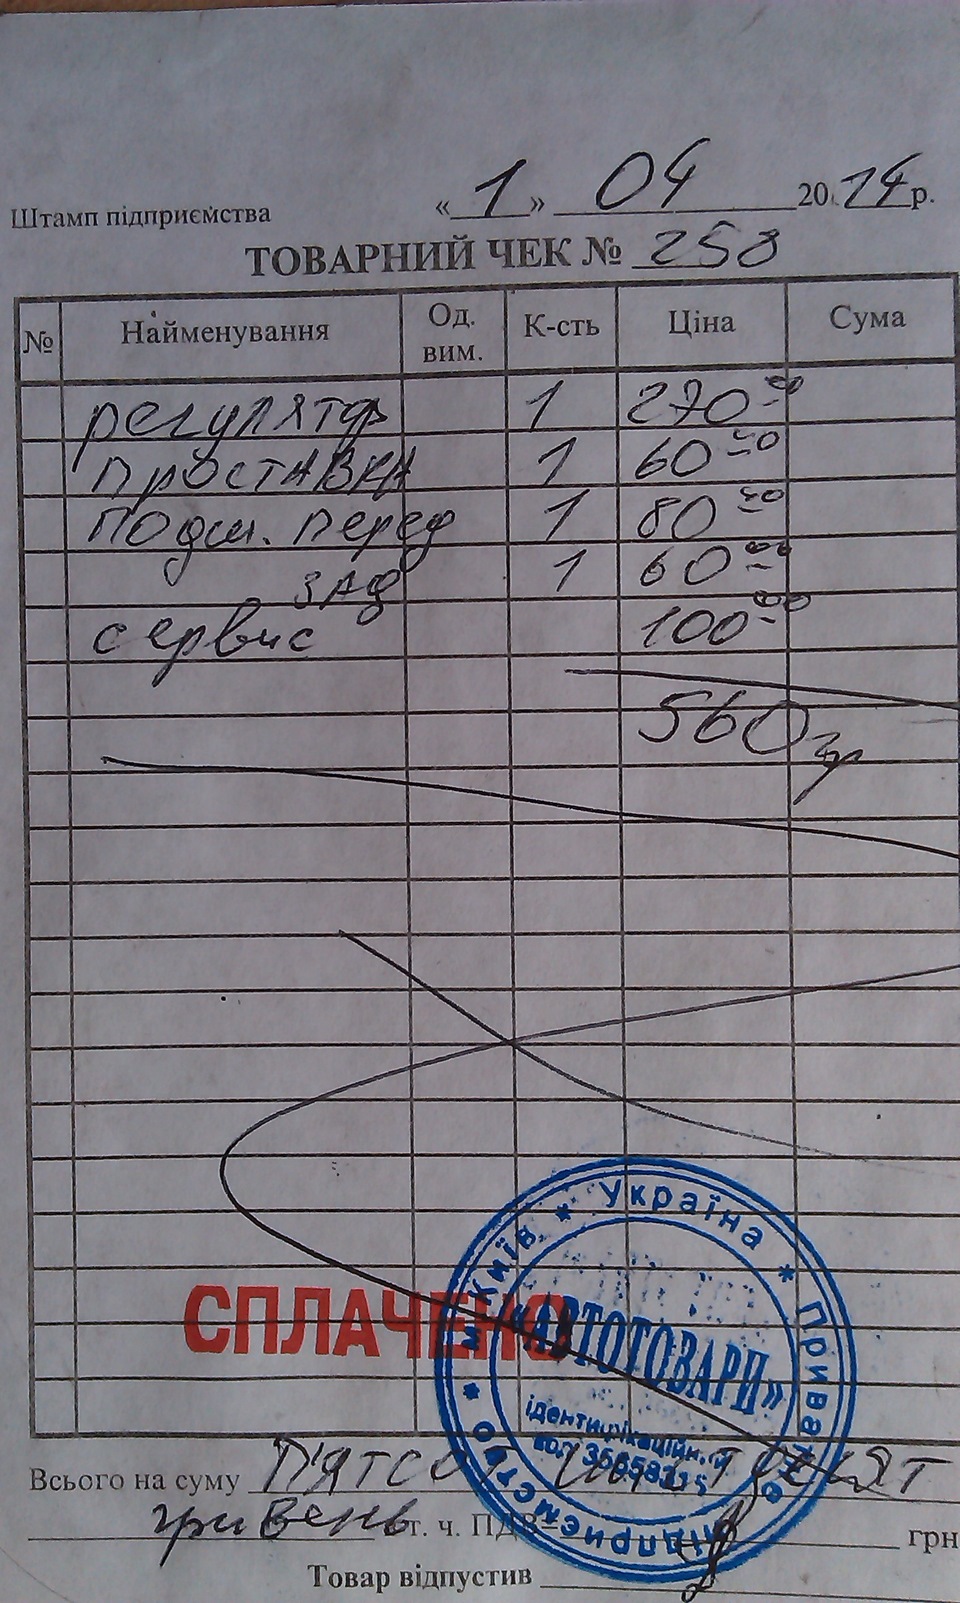 Штамп підприємства « 1 » 04 2014 р.
ТОВАРНИЙ ЧЕК № 258
№ Найменування Од. вим. К-сть Ціна Сума
регулятор 1 270-00
проставка 1 60-00
подш. перед 1 80-00
зад 1 60-00
сервис 100-00
560 гр
СПЛАЧЕНО
* м. Київ * Україна * Приватне підприємство
«АВТОТОВАРИ»
ідентифікаційний
код
Всього на суму П'ятсот шістдесят
гривень т. ч. ПДВ грн
Товар відпустив